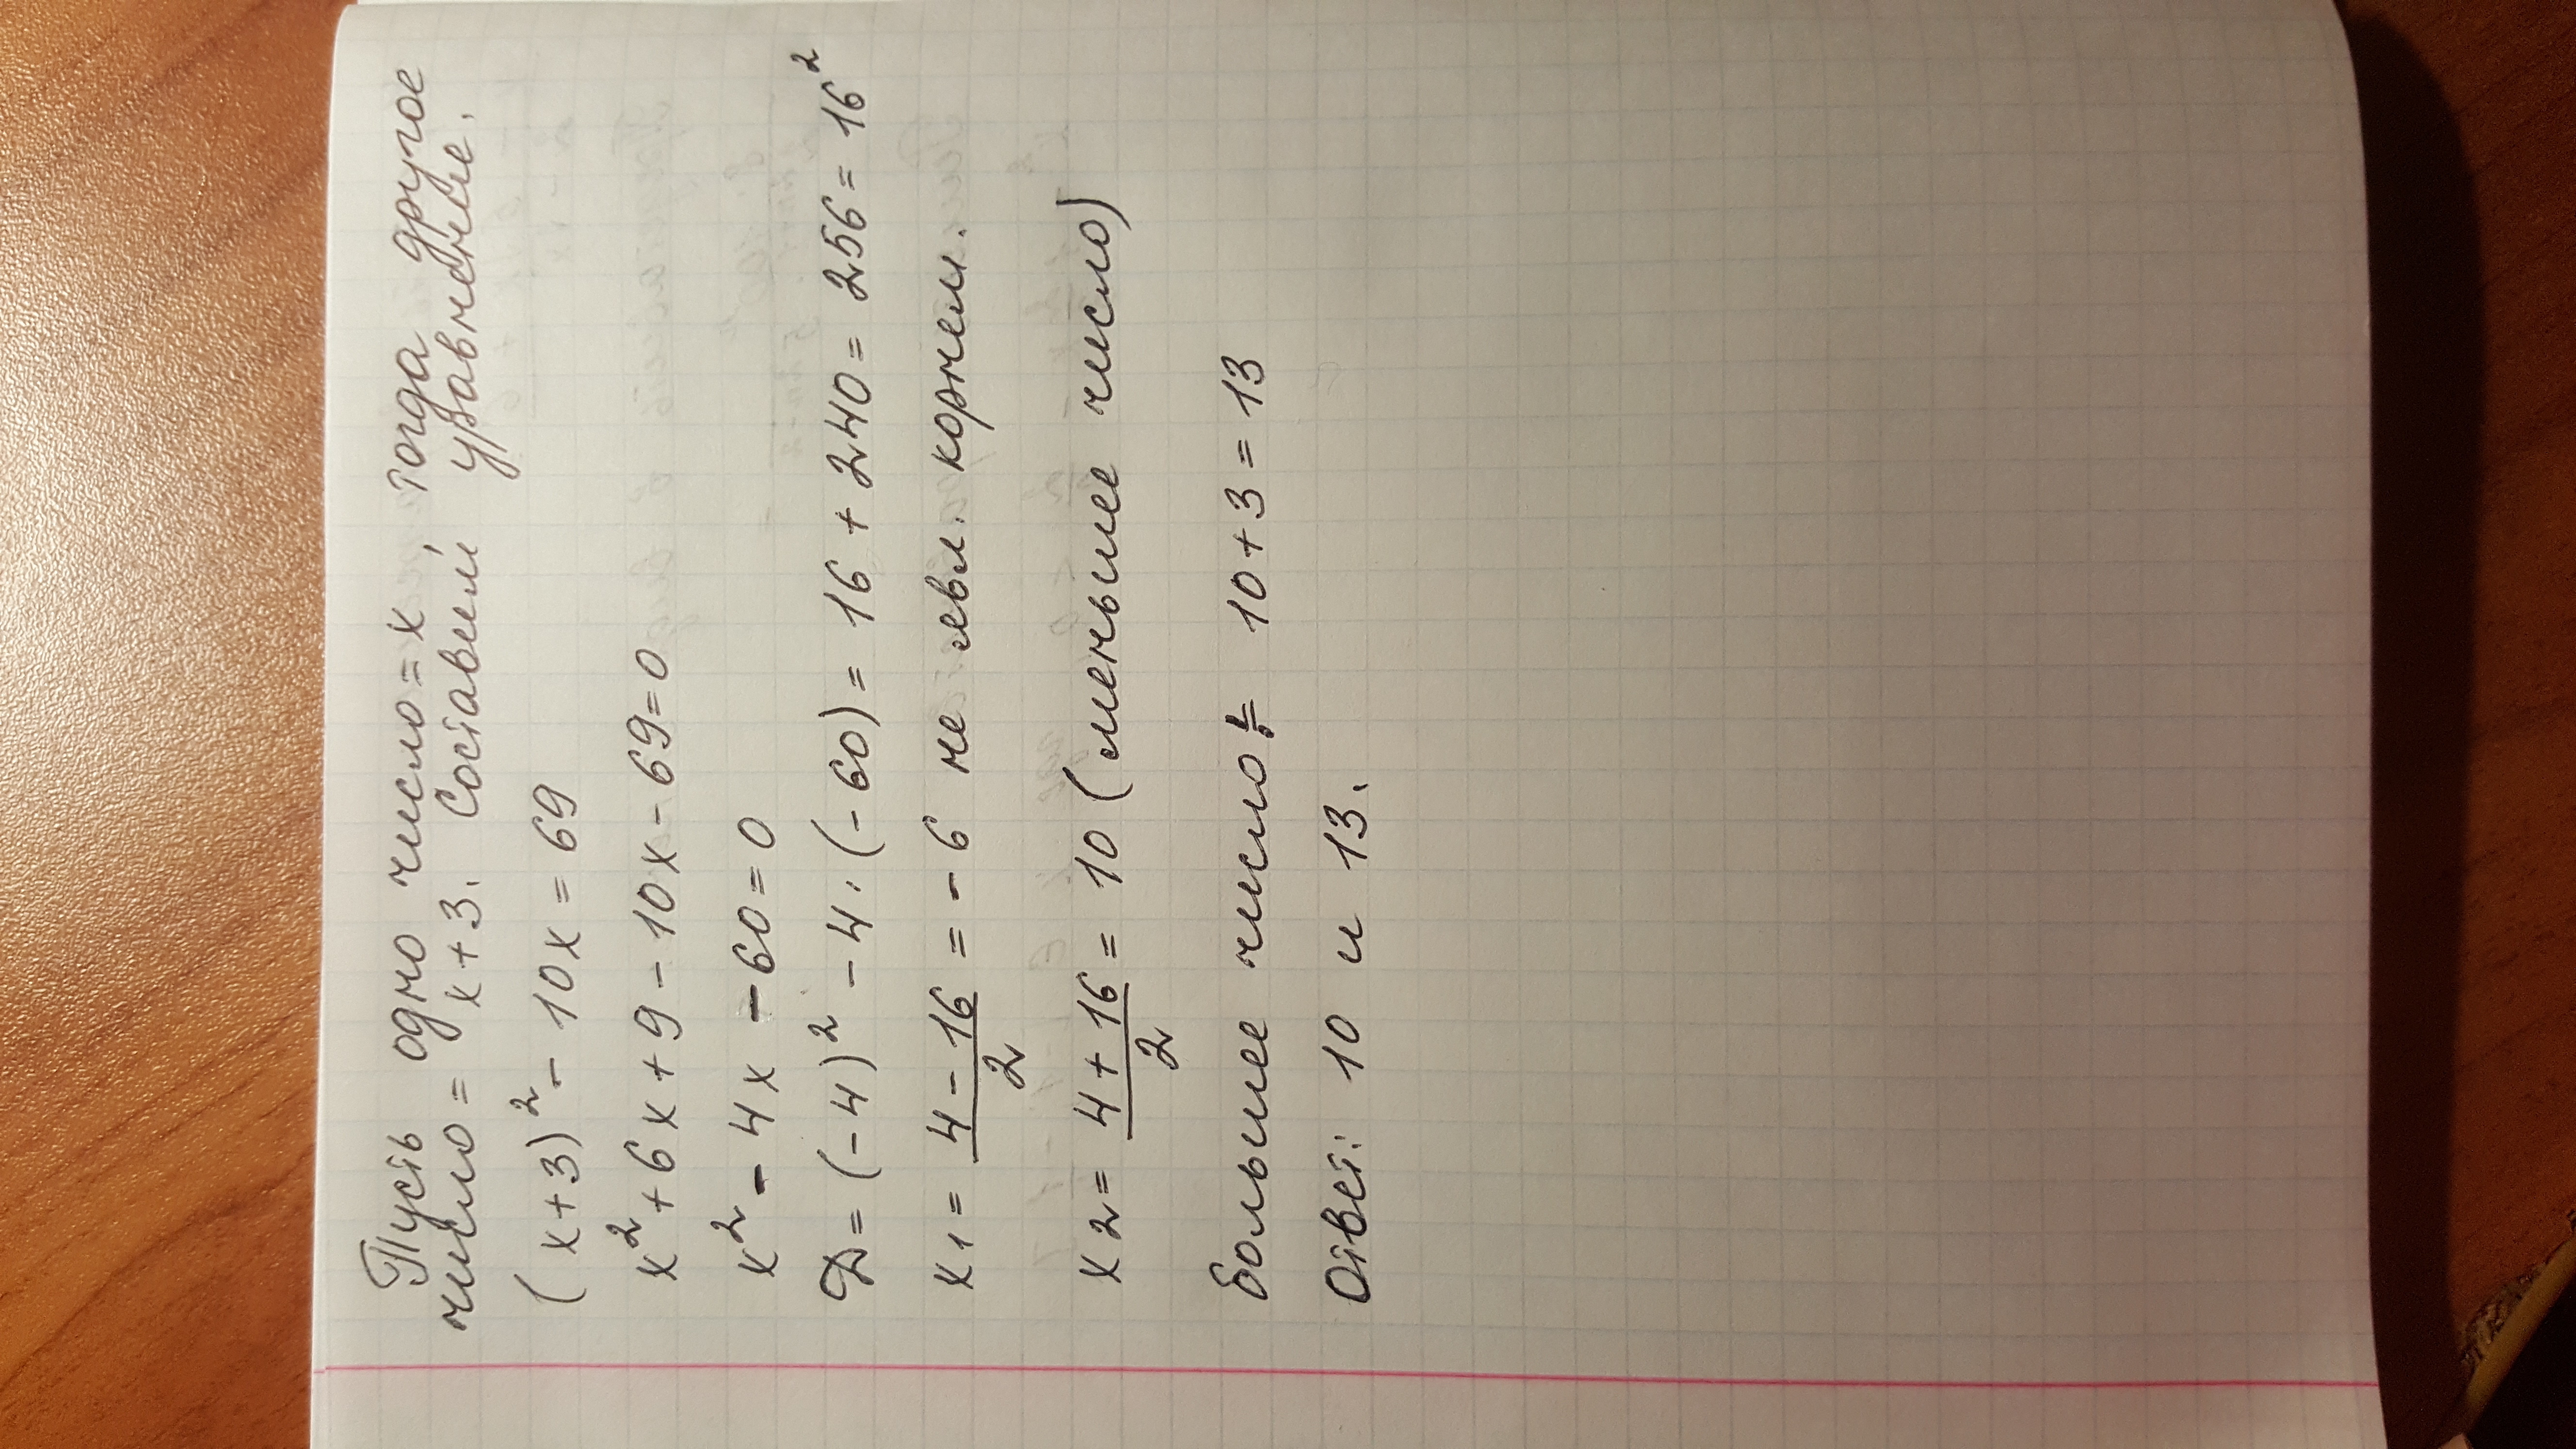 Пусть одно число = x, тогда другое
число = x + 3. Составим уравнение.
(x+3)² - 10x = 69
x² + 6x + 9 - 10x - 69 = 0
x² - 4x - 60 = 0
D = (-4)² - 4·(-60) = 16 + 240 = 256 = 16²
x₁ = (4-16)/2 = -6 не явл. корнем.
x₂ = (4+16)/2 = 10 (меньшее число)
Большее число = 10+3 = 13
Ответ: 10 и 13.